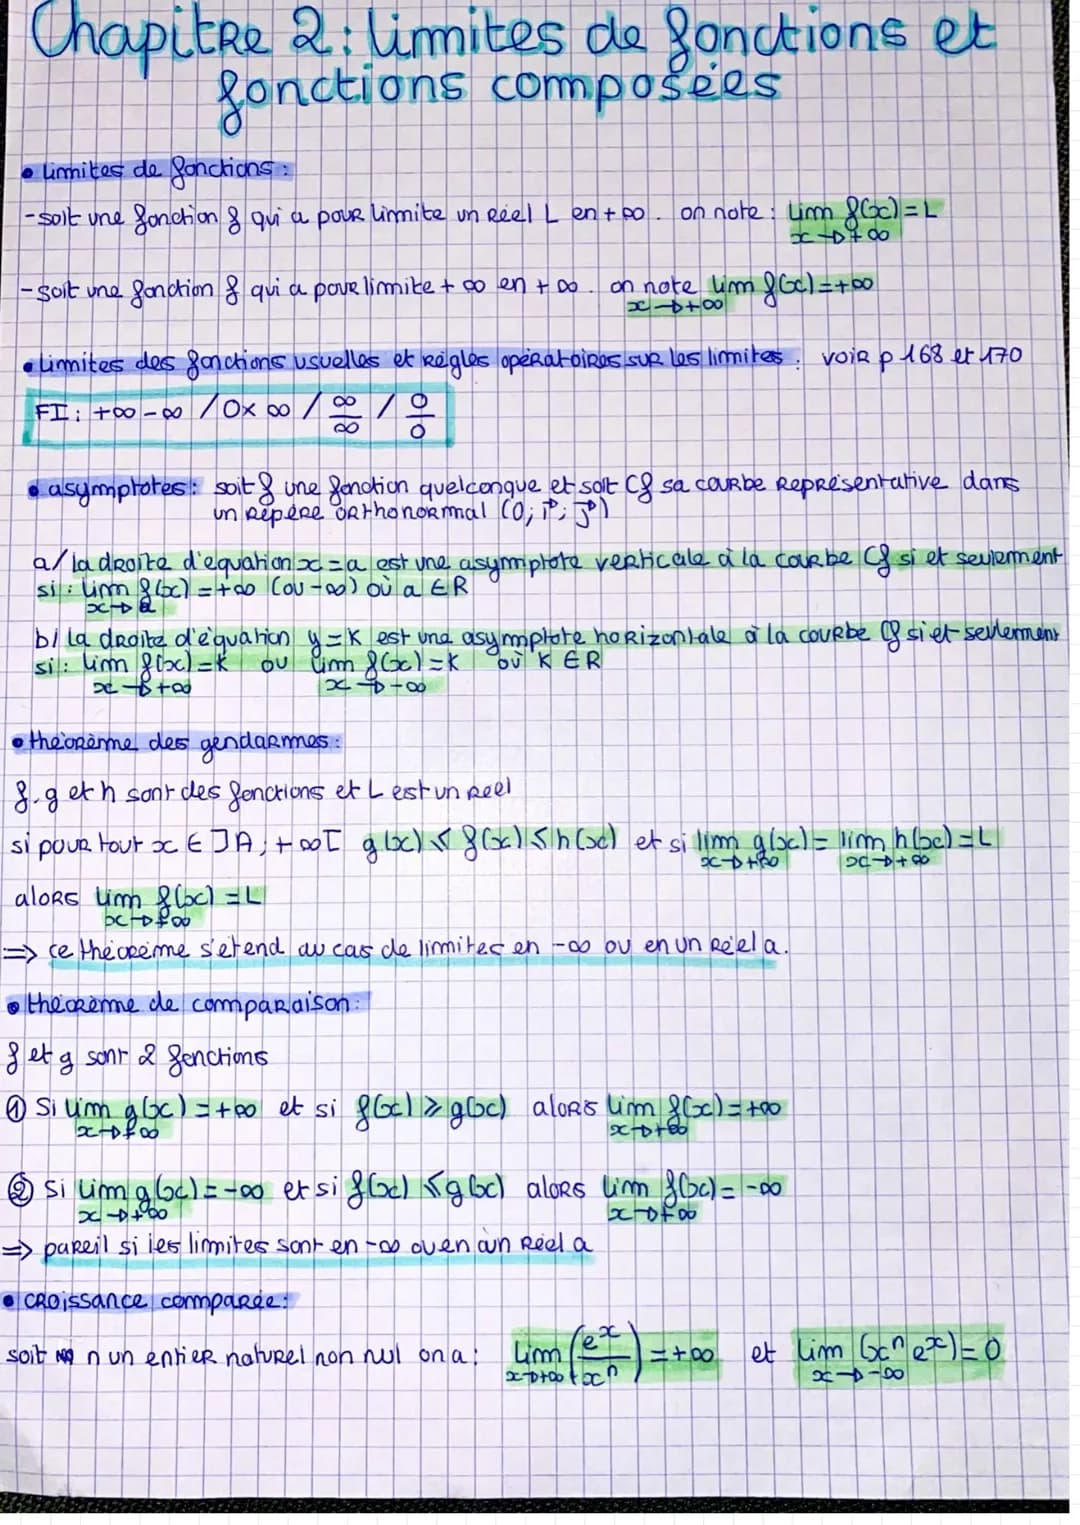 Chapitre 2: limites de fonctions et
fonctions composées
• limites de fonctions :
- soit une fonction f qui a pour limite un réel L en +∞. on note : lim f(x) = L
x→+∞
- soit une fonction f qui a pour limite +∞ en +∞. on note lim f(x) = +∞
x→+∞
• limites des fonctions usuelles et règles opératoires sur les limites : voir p 168 et 170
FI : +∞ -∞ / 0×∞ / ∞/∞ / 0/0
• asymptotes : soit f une fonction quelconque et soit Cf sa courbe représentative dans
un repère orthonormal (O; i; j)
a/ la droite d'équation x = a est une asymptote verticale à la courbe Cf si et seulement
si : lim f(x) = +∞ (ou -∞) où a ∈ R
x→a
b/ la droite d'équation y = K est une asymptote horizontale à la courbe Cf si et seulement
si : lim f(x) = K ou lim f(x) = K où K ∈ R
x→+∞ x→-∞
• théorème des gendarmes :
f, g et h sont des fonctions et L est un réel
si pour tout x ∈ ]A ; +∞[ g(x) ≤ f(x) ≤ h(x) et si lim g(x) = lim h(x) = L
x→+∞ x→+∞
alors lim f(x) = L
x→+∞
=> ce théorème s'étend au cas de limites en -∞ ou en un réel a.
• théorème de comparaison :
f et g sont 2 fonctions
① Si lim g(x) = +∞ et si f(x) ≥ g(x) alors lim f(x) = +∞
x→+∞ x→+∞
② Si lim g(x) = -∞ et si f(x) ≤ g(x) alors lim f(x) = -∞
x→+∞ x→+∞
=> pareil si les limites sont en -∞ ou en un réel a
• croissance comparée :
soit n un entier naturel non nul on a : lim (e^x/x^n) = +∞ et lim (x^n e^x) = 0
x→+∞ x→-∞